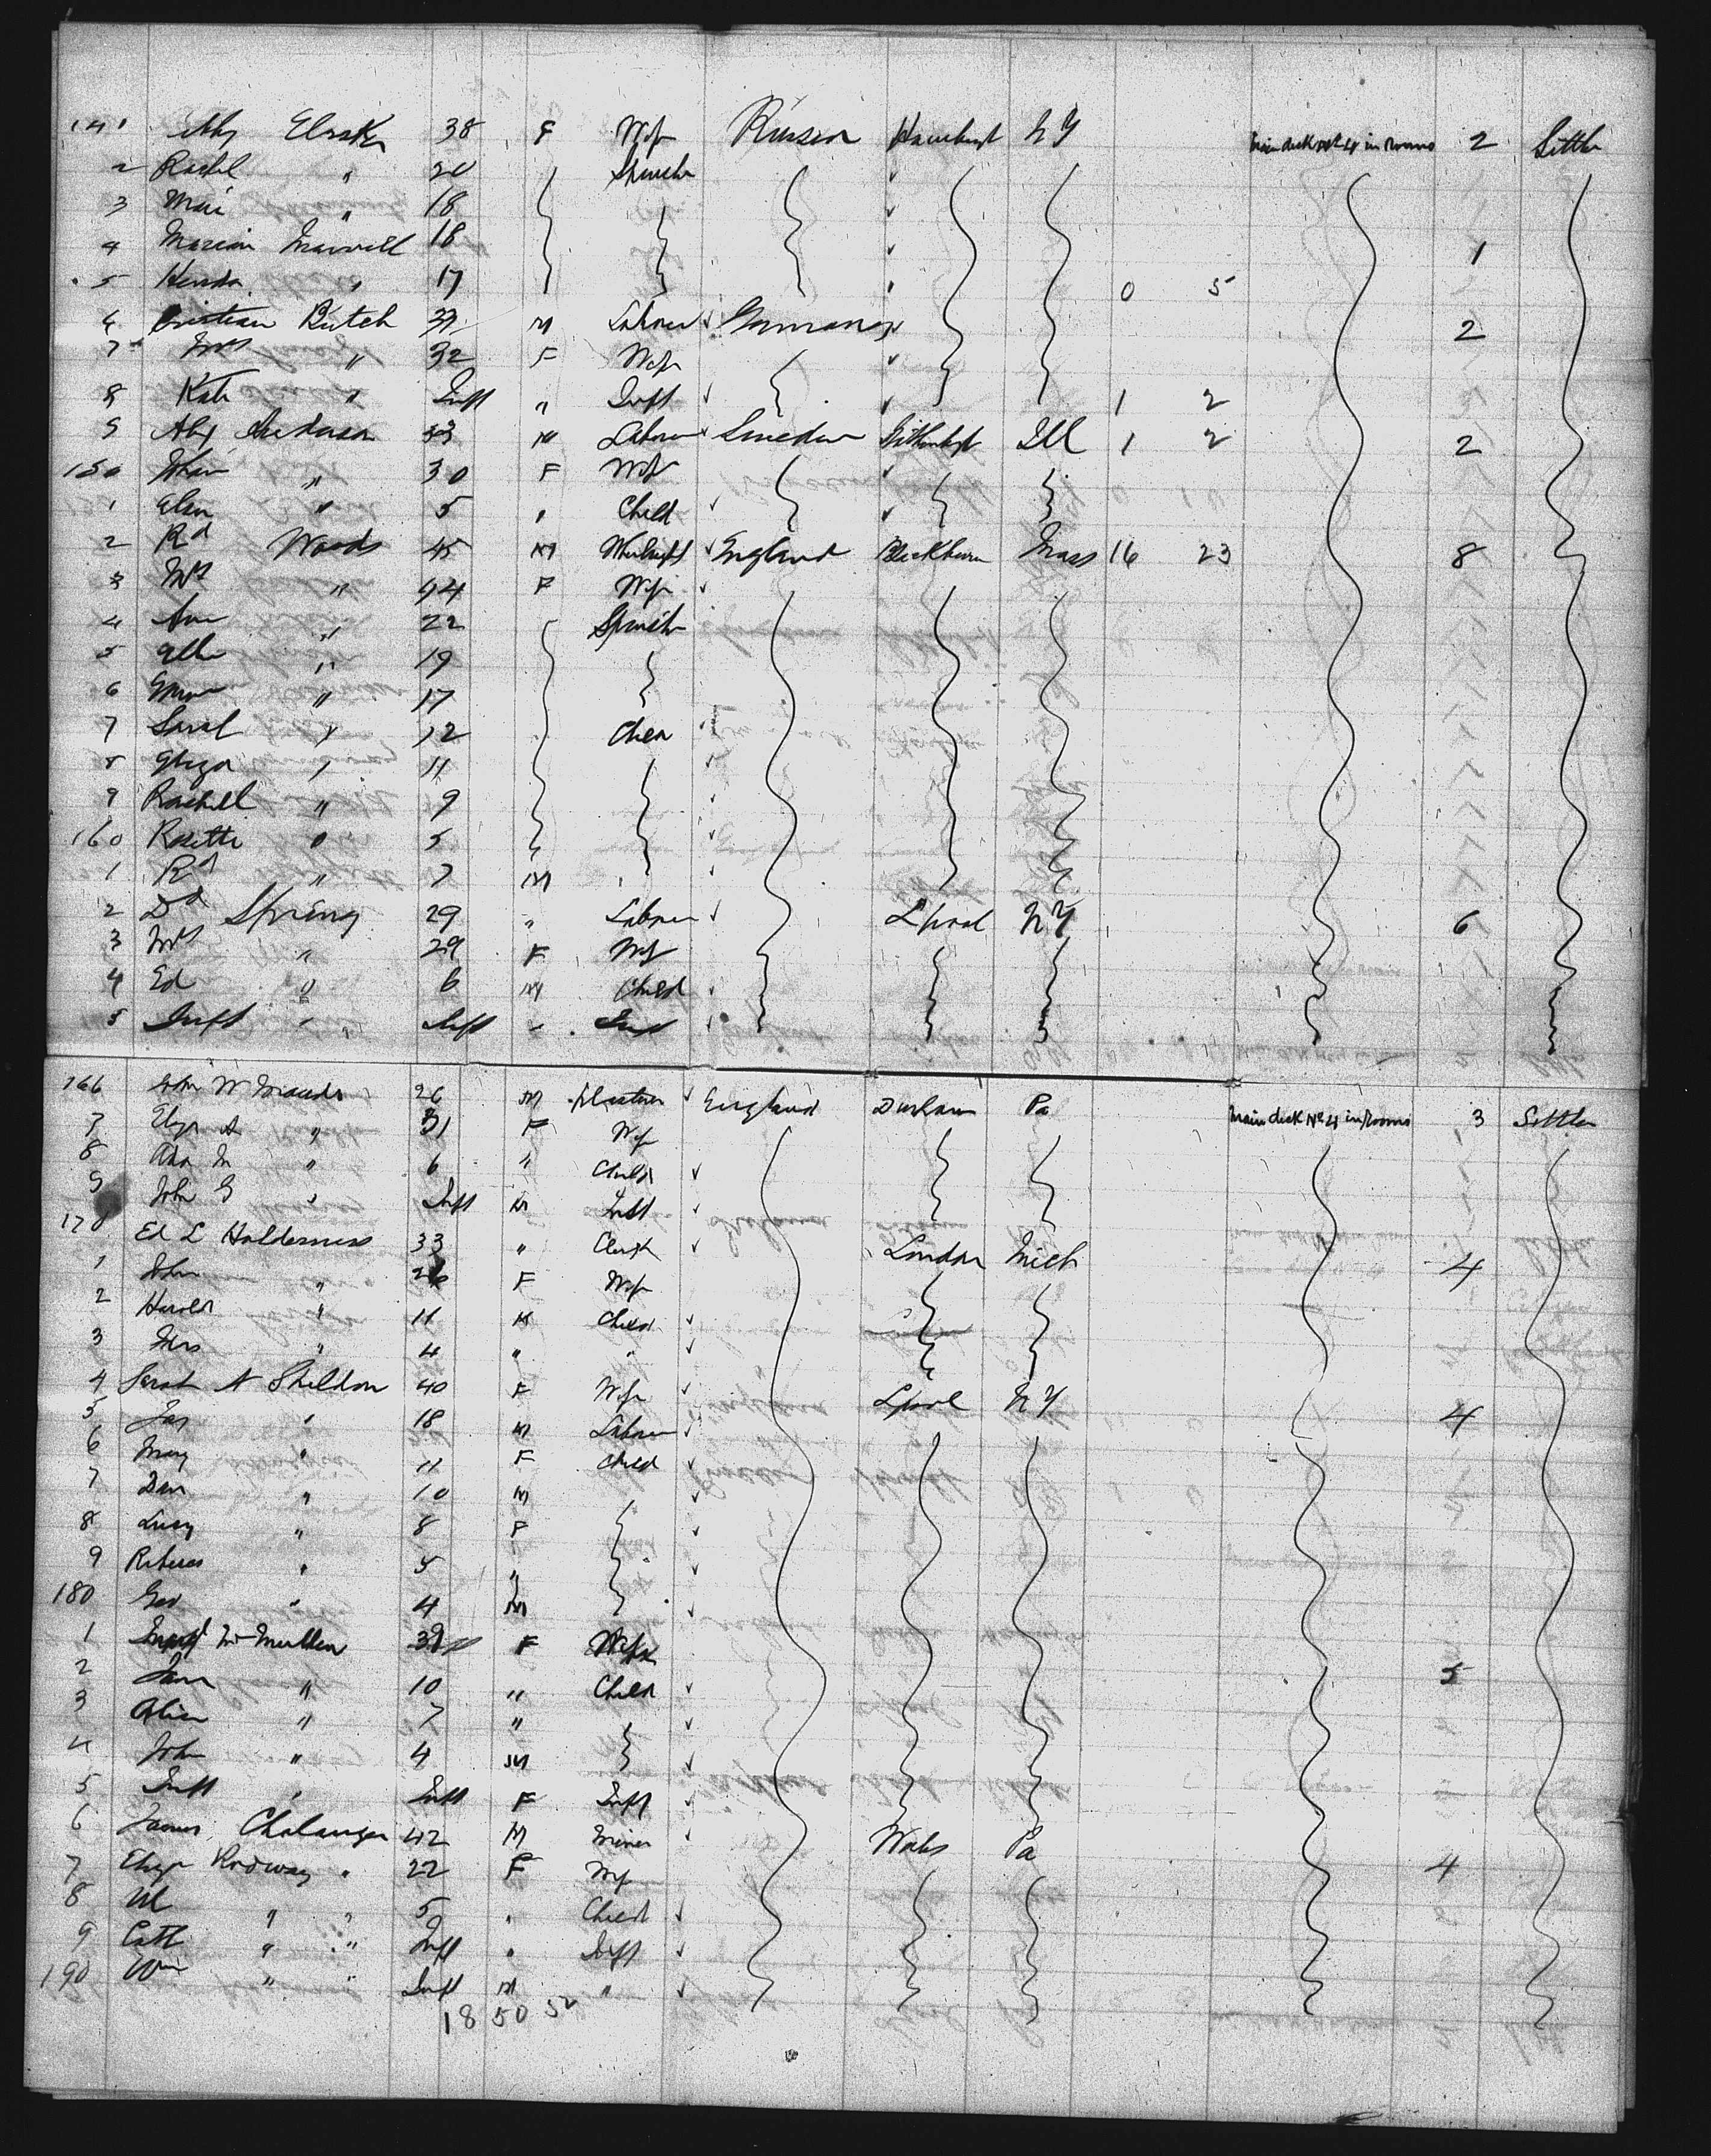 141 Elraka 38 F Wife Russia Hamburgh N Y Main deck No 4 in Rooms 2 Settler
2 Rachel " 20 Spinster
3 Mai " 18
4 18 1
5 " 17 0 5
6 Cristian Butch M Laborer Germany 2
7 Mrs " 32 F Wife
8 Kate " Inft " Inft 1 2
9 Alex Anderson 33 M Laborer Sweden Ill 1 2 2
150 " 30 F Wife
1 " 5 " Child
2 Rd Woods 45 M England Blackburn Mass 16 23 8
3 Mrs " 44 F Wife
4 Ann " 22 Spinster
5 " 19
6 " 17
7 Sarah " 12 Child
8 Eliza " 11
9 Rachell " 9
160 " 5
1 Rd " 7 M
2 Dd Spring 29 " Laborer Lpool N Y 6
3 Mrs " 29 F Wife
4 Ed " 6 M Child
5 Inft " Inft " Inft
166 John W 26 M England Durham Pa Main deck No 4 in Rooms 3 Settler
7 Eliza A " 31 F Wife
8 Ada M " 6 " Child
9 John G " Inft M Inft
170 Ed L Holderness 33 " Clerk London Mich 4
1 " F Wife
2 Harold " 11 M Child
3 " 4 " "
4 Sarah A Sheldon 40 F Wife Lpool N Y 4
5 Jas " 18 M Laborer
6 Mary " 11 F Child
7 Dan " 10 M
8 Lucy " 8 F
9 Rebecca " 5 "
180 Geo " 4 M
1 McMullen F Wife 5
2 Jane " 10 " Child
3 Alice " 7 "
4 John " 4 M
5 Inft " Inft F Inft
6 James 42 M Miner Wales Pa 4
7 Eliza Rodway " 22 F Wife
8 " " 5 " Child
9 Cath " " Inft " Inft
190 Wm " " Inft M "
18 50 52